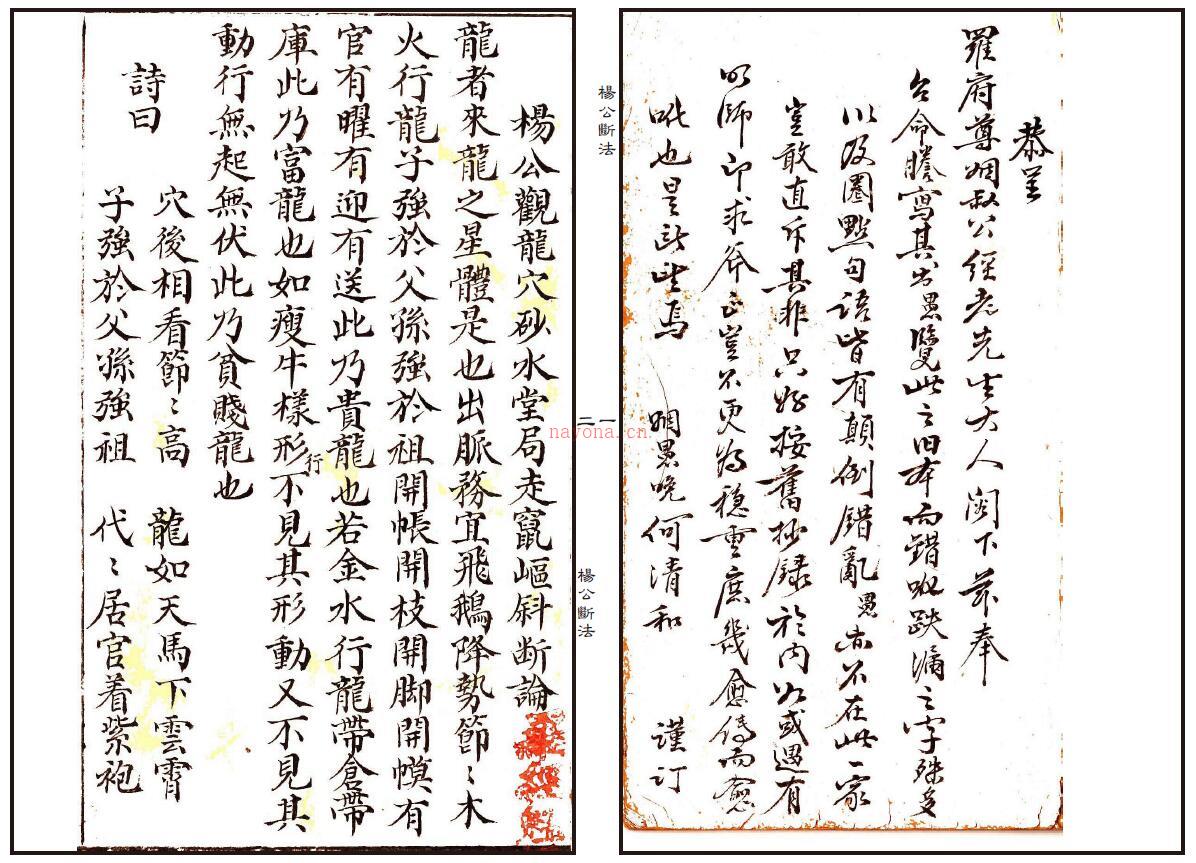 恭呈
羅府尊姻叔公經老先生大人閣下茲奉
台命謄寫其书愚覽此之旧本而錯落跌漏之字殊多
以及圈點句語皆有顛倒錯亂愚亦不在此一家
豈敢直斥其非只好按舊抄録於內必或遇有
明師即求斧正豈不更為穩重庶幾愈傳而愈
也是
姻愚晚何清和
謹订
楊公斷法
一
二
楊公斷法
楊公觀龍穴砂水堂局走竄嶇斜斷論
龍者來龍之星體是也出脈務宜飛鵝降勢節〻木
火行龍子強於父孫強於祖開帳開枝開脚開幙有
官有曜有迎有送此乃貴龍也若金水行龍帶倉帶
庫此乃富龍也如瘦牛樣形行不見其形動又不見其
動行無起無伏此乃貧賤龍也
詩曰
穴後相看節〻高 龍如天馬下雲霄
子強於父孫強祖 代〻居官着紫袍
nayona.cn